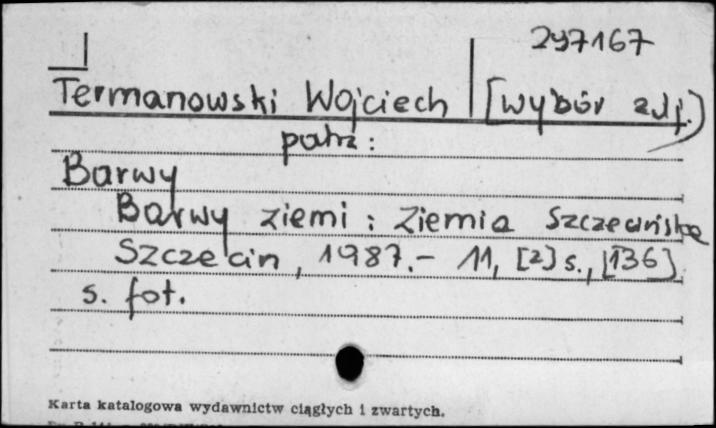 297167
Termanowski Wojciech [wybór zdj.)
patrz:
Barwy
Barwy ziemi : Ziemia Szczecińska
Szczecin, 1987.- 11, [2] s., [136]
s. fot.
Karta katalogowa wydawnictw ciągłych i zwartych.